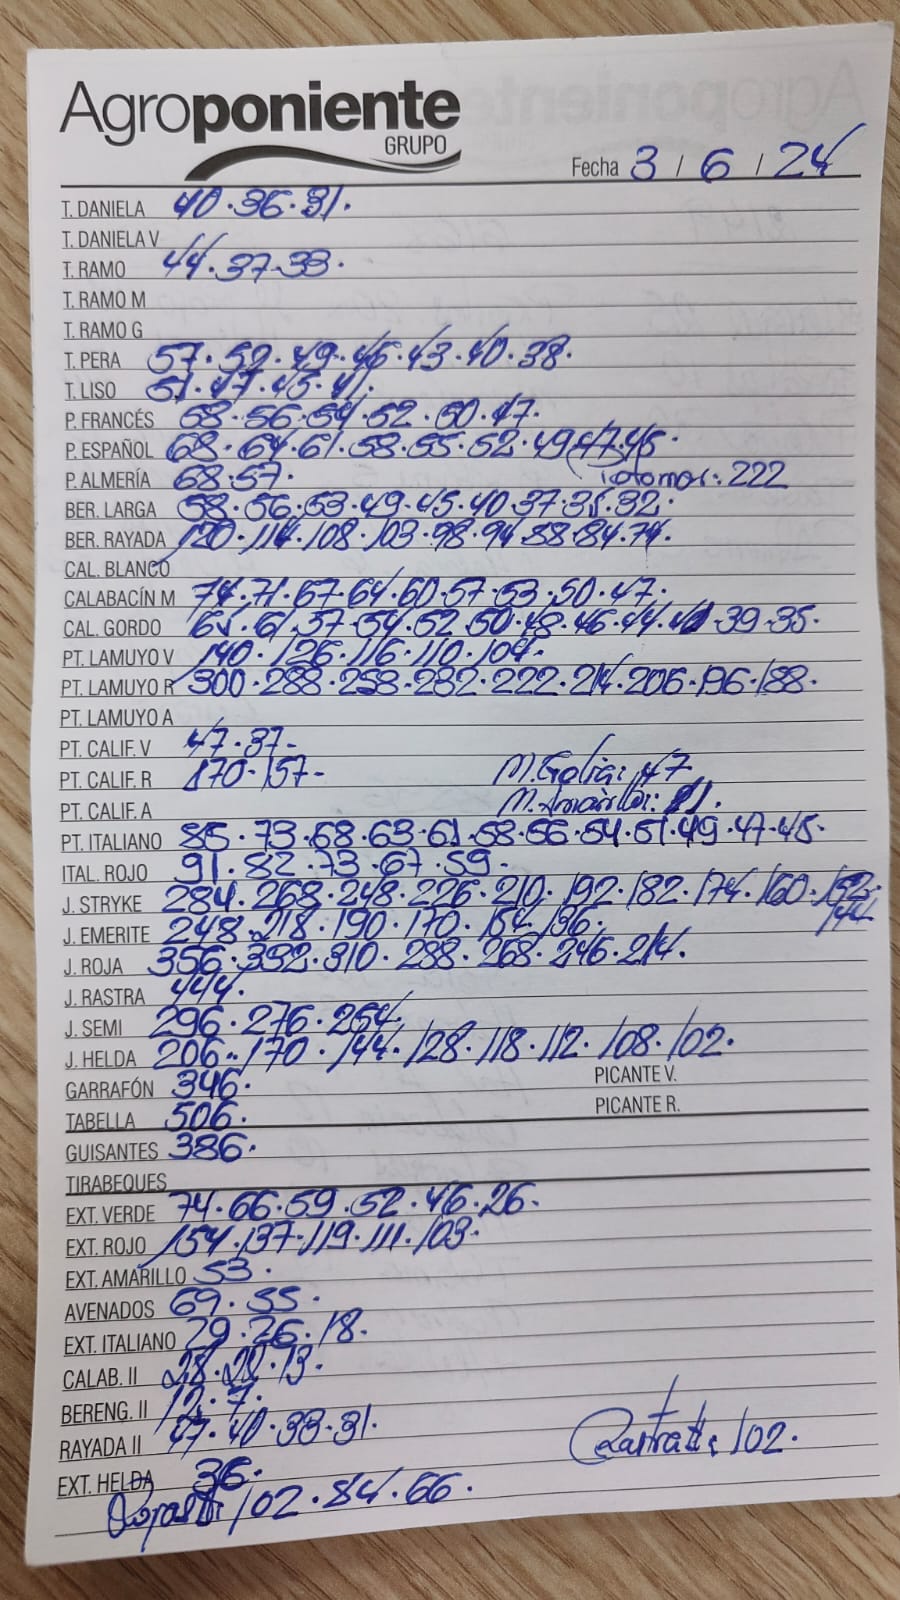 Agroponiente
GRUPO
Fecha 3 / 6 / 24
T. DANIELA 40.36.31.
T. DANIELA V
T. RAMO 44.37-33.
T. RAMO M
T. RAMO G
T. PERA 57.52.49.46.43.40.38.
T. LISO 51.47.45.41.
P. FRANCÉS 68.56.54.52.50.47.
P. ESPAÑOL 68.64.61.58.55.52.49.47.45.
P. ALMERÍA 68.57. 222
BER. LARGA 58.56.53.49.45.40.37.35.32.
BER. RAYADA 120.114.108.103.98.94.88.84.74.
CAL. BLANCO
CALABACÍN M 74.71.67.64.60.57.53.50.47.
CAL. GORDO 65.61.57-54.52.50.48.46.44.41.39.35.
PT. LAMUYO V 140.126.116.110.104.
PT. LAMUYO R 300.288.258.232.222.214.206.196.188.
PT. LAMUYO A
PT. CALIF. V 47.37-
PT. CALIF. R 170-157- M. Galia: 47
PT. CALIF. A M. Amarillo: 21.
PT. ITALIANO 85.73.68.63.61.58.56.54.51.49.47.45.
ITAL. ROJO 91.82.73.67.59.
J. STRYKE 284.268.248.226.210.192.182.174.160.152.
144
J. EMERITE 248.218.190.170.154.136.
J. ROJA 356.332.310.288.268.246.214.
J. RASTRA 444.
J. SEMI 296.276.264.
J. HELDA 206.170.144.128.118.112.108.102.
GARRAFÓN 346. PICANTE V.
TABELLA 506. PICANTE R.
GUISANTES 386.
TIRABEQUES
EXT. VERDE 74.66.59.52.46.26.
EXT. ROJO 154.137-119.111.103.
EXT. AMARILLO 53.
AVENADOS 69.55.
EXT. ITALIANO 29.26.18.
CALAB. II 28.22.13.
BERENG. II 12.7.
RAYADA II 47.40.33.31. Rastra II: 102.
EXT. HELDA 36.
Roja II: 102.84.66.